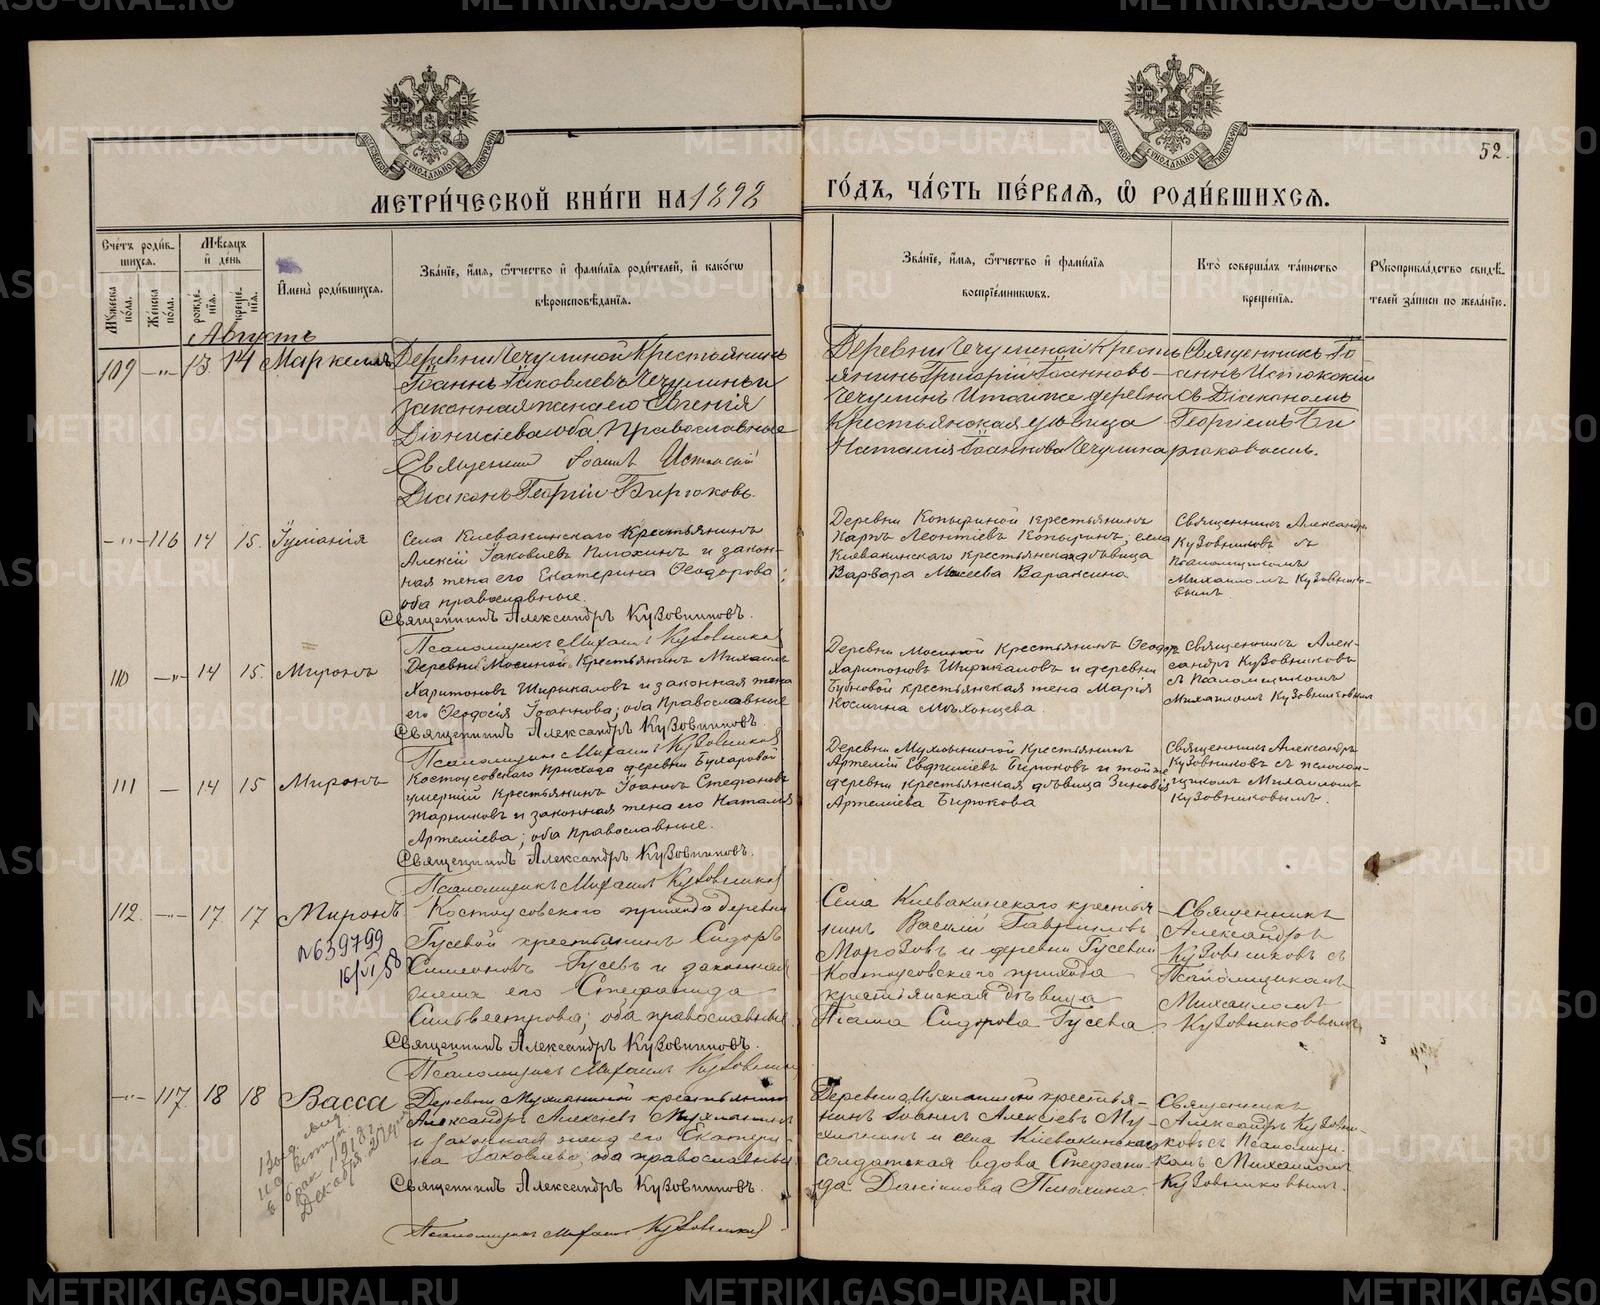 МЕТРИ́ЧЕСКОЙ КНИ́ГИ НА 1898
ГО́ДЪ, ЧА́СТЬ ПЕ́РВАЯ, Ѡ҆ РОДИ́ВШИХСЯ.
52.
Сче́тъ роди́в-
шихся.
Мѣ́сяцъ
и҆ де́нь
Му́жеска
по́ла.
Же́нска
по́ла.
рожде́-
нїѧ.
креще́-
нїѧ.
И҆мена̀ роди́вшихся.
Зва́нїе, и҆́мѧ, ѻ҆́тчество и҆ фами́лїѧ роди́телей, и҆ како́гѡ
вѣроисповѣ́данїѧ.
Зва́нїе, и҆́мѧ, ѻ҆́тчество и҆ фами́лїѧ
воспрїе́мникѡвъ.
Кто̀ соверша́лъ та́инство
креще́нїѧ.
Рꙋкоприкла́дство свидѣ́-
телей за́писи по жела́нїю.
Августъ
109 -"- 13 14 Маркеллъ
Деревни Чечулиной Крестьянинъ
Іоаннъ Іаковлевъ Чечулинъ и
законная жена его Евгенія
Діонисіева оба Православные
Священникъ Іоаннъ Истокскій
Діаконъ Георгій Бирюковъ.
Деревни Чечулиной Кресть
янинъ Григорій Іоанновъ
Чечулинъ и тойже деревни
Крестьянская дѣвица
Наталія Іоаннова Чечулина
Священникъ Іо
аннъ Истокскій
съ Діакономъ
Георгіемъ Би
рюковымъ.
-"- 116 14 15. Іуліанія
Села Клевакинскаго Крестьянинъ
Алексій Іаковлевъ Плюхинъ и закон-
ная жена его Екатерина Ѳеодорова;
оба православные.
Священникъ Александръ Кузовниковъ.
Псаломщикъ Михаилъ Кузовников
Деревни Копыриной крестьянинъ
Карпъ Леонтіевъ Копыринъ; села
Клевакинскаго крестьянская дѣвица
Варвара Моѵсеева Вараксина
Священникъ Александръ
Кузовниковъ съ
Псаломщикомъ
Михаиломъ Кузовнико-
вымъ.
110 -"- 14 15. Миронъ
Деревни Мосиной Крестьянинъ Михаилъ
Харитоновъ Ширыкаловъ и законная жена
его Ѳеодосія Іоаннова; оба Православные
Священникъ Александръ Кузовниковъ.
Псаломщикъ Михаилъ Кузовников
Деревни Мосиной Крестьянинъ Ѳеодоръ
Харитоновъ Ширыкаловъ и деревни
крестьянская жена Марія
Космина Мѣхонцева.
Священникъ Алек-
сандръ Кузовниковъ
съ Псаломщикомъ
Михаиломъ Кузовниковымъ
111 — 14 15 Миронъ
Костоусовскаго прихода деревни
умершій Крестьянинъ Іоаннъ Стефановъ
Жарниковъ и законная жена его Наталія
Артеміева; оба Православные.
Священникъ Александръ Кузовниковъ.
Псаломщикъ Михаилъ Кузовников
Деревни Мухлыниной Крестьянинъ
Артемій Бирюковъ и той же
деревни крестьянская дѣвица Зиновія
Артеміева Бирюкова
Священникъ Александръ
Кузовниковъ съ псалом-
щикомъ Михаиломъ
Кузовниковымъ.
112. -"- 17 17 Миронъ
№639799
16/VI 58
Костоусовскаго прихода деревни
Гусевой крестьянинъ Сидоръ
Симеоновъ Гусевъ и законная
жена его Стефанида
Сильвестрова; оба православные
Священникъ Александръ Кузовниковъ.
Псаломщикъ Михаилъ Кузовников
Села Клевакинскаго крестья
нинъ Василій Гавриловъ
Морозовъ и деревни Гусевой
Костоусовскаго прихода
крестьянская дѣвица
Сидорова Гусева
Священникъ
Александръ
Кузовниковъ съ
Псаломщикомъ
Михаиломъ
Кузовниковымъ
-"- 117. 18 18 Васса
въ
бракъ 1918 г.
Декабря
Деревни Мухлыниной крестьянинъ
Александръ Алексіевъ Мухлынинъ
и законная жена его Екатери-
на Іаковлева; оба православные
Священникъ Александръ Кузовниковъ.
Псаломщикъ Михаилъ Кузовников
Деревни Мухлыниной крестья-
нинъ Алексіевъ Му-
хлынинъ и села Клевакинскаго
солдатская вдова Стефани-
да Даніилова Плюхина.
Священникъ
Александръ Кузовни-
ковъ съ Псаломщи-
комъ Михаиломъ
Кузовниковымъ.
METRIKI.GASO-URAL.RU